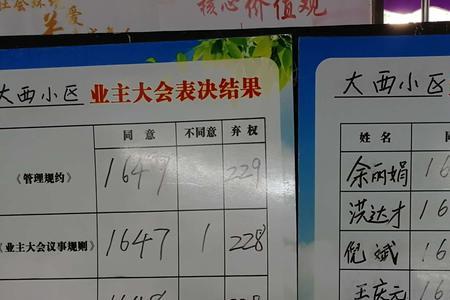 核心价值观
大西小区 业主大会表决结果
同意 不同意 弃权
《管理规约》 1649 229
《业主大会议事规则》 1647 1 228
大西小区
姓名
余丽娟 16
洪达才 16
倪斌 16
王庆元